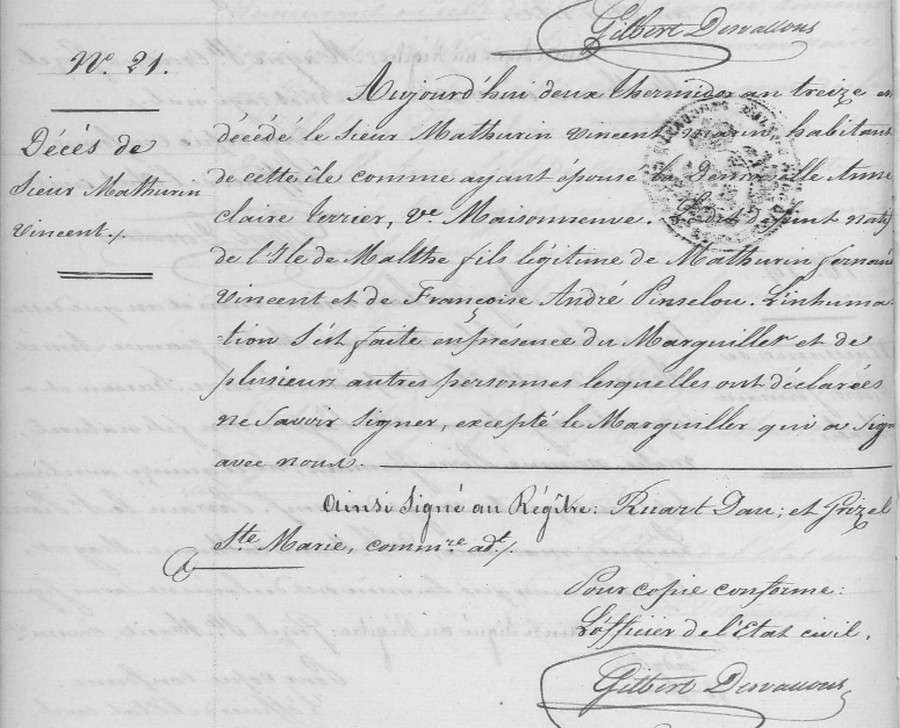 Gilbert Desvallons
N°. 21.
Décés de
Sieur Mathurin
Vincent./.
Aujourd'hui deux thermidor an treize est
décédé le Sieur Mathurin Vincent, marin, habitant
de cette île comme ayant épousé la Demoiselle Anne
Claire Verrier, Ve. Maisonneuve. Ledit défunt natif
de l'Ile de Malthe fils légitime de Mathurin
Vincent et de Françoise André Pinselou. L'inhuma=
=tion s'est faite en présence du Marguiller et de
plusieurs autres personnes lesquelles ont déclarées
ne Savoir Signer, excepté le Marguiller qui a Signé
avec nous.
Ainsi Signé au Régître: Ruart Dau; et Grizel
Ste Marie, commre. adt./.
Pour copie conforme:
L'officier de l'Etat civil,
Gilbert Desvallons